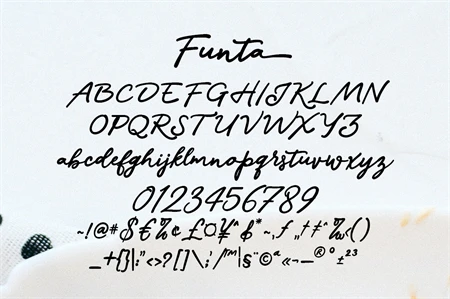 Funta
ABCDEFGHIJKLMN
OPQRSTUVWXYZ
abcdefghijklmnopqrstuvwxyz
0123456789
~!@#$€%¢£¤¥^&*~‚ƒ„†‡ˆ‰‹()
_+{}|:"<>?[]\;'/™|§¨©ª«¬—®°±²³